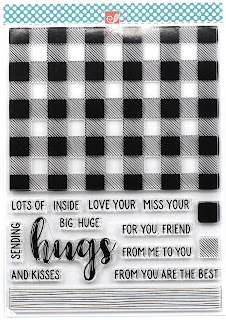 LOTS OF INSIDE LOVE YOUR MISS YOUR
BIG HUGE
SENDING
hugs
FOR YOU, FRIEND
FROM ME TO YOU
AND KISSES
FROM YOU ARE THE BEST